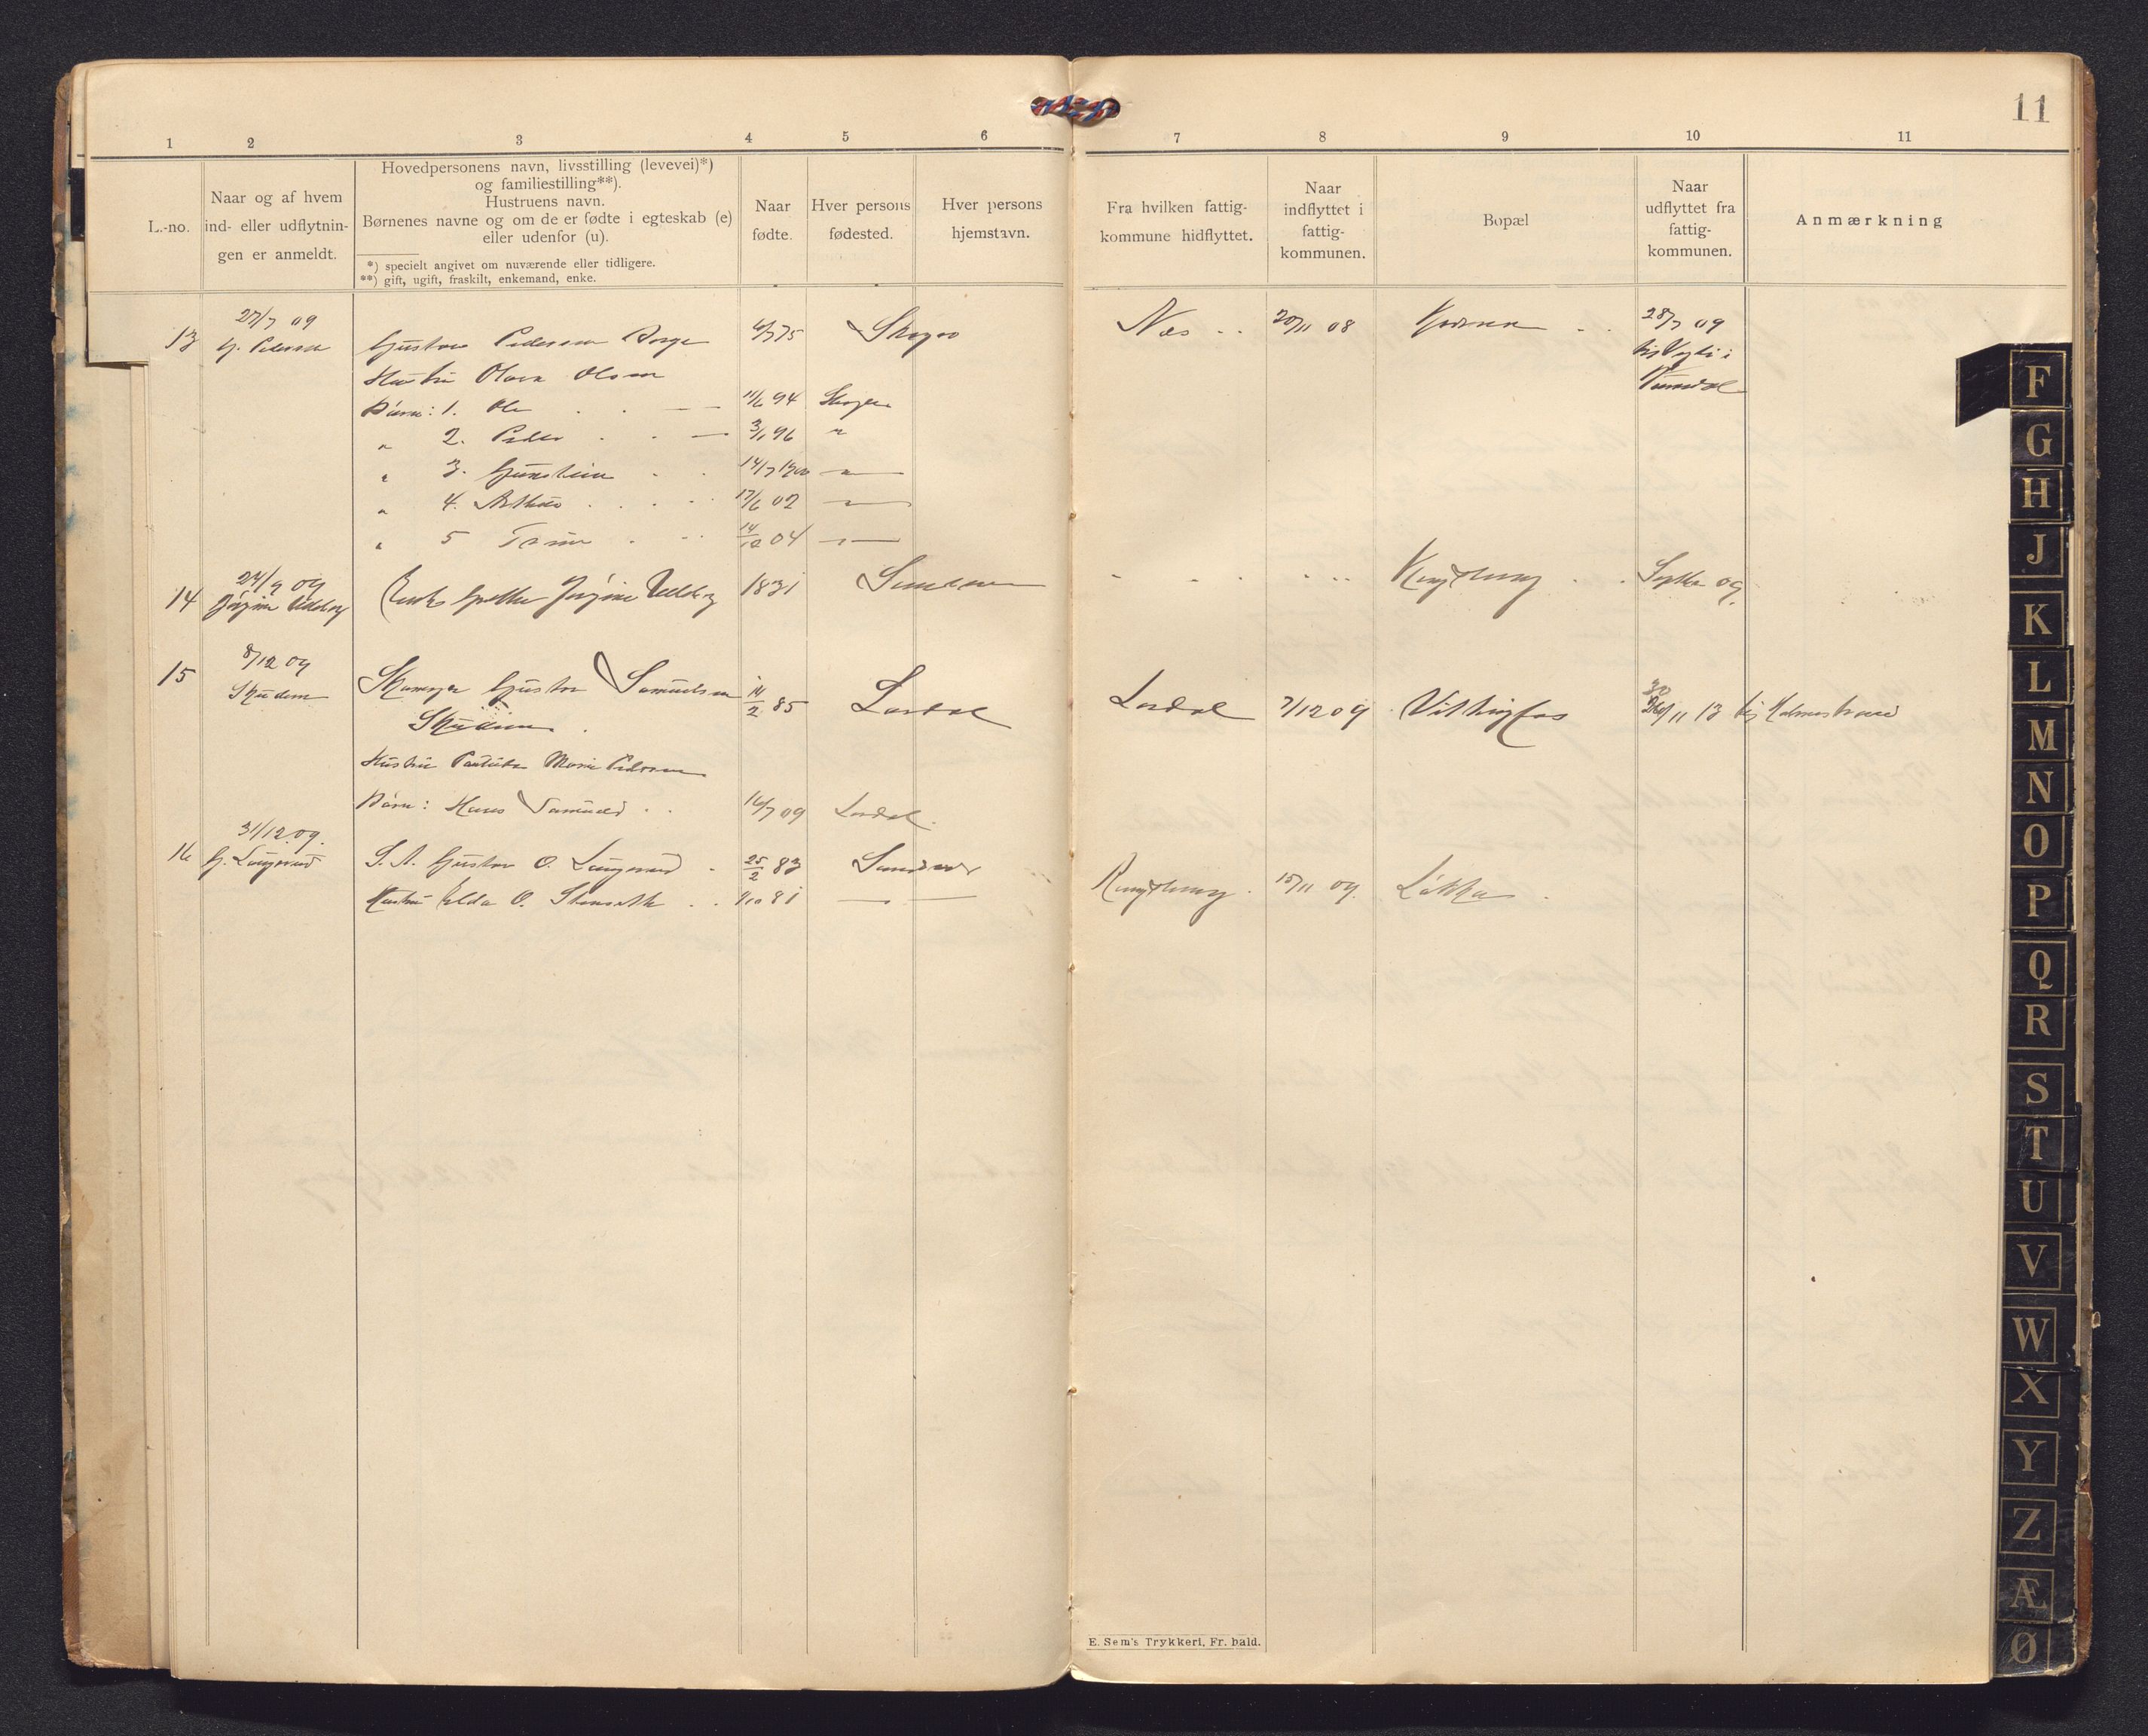 11
1 2 3 4 5 6 7 8 9 10 11
L.-no.
Naar og af hvem
ind- eller udflytnin-
gen er anmeldt.
Hovedpersonens navn, livsstilling (levevei)*)
og familiestilling**).
Hustruens navn.
Børnenes navne og om de er fødte i egteskab (e)
eller udenfor (u).
*) specielt angivet om nuværende eller tidligere.
**) gift, ugift, fraskilt, enkemand, enke.
Naar
fødte.
Hver persons
fødested.
Hver persons
hjemstavn.
Fra hvilken fattig-
kommune hidflyttet.
Naar
indflyttet i
fattig-
kommunen.
Bopæl
Naar
udflyttet fra
fattig-
kommunen.
Anmærkning
27/7 09
13 G. Pedersen Gustav Pedersen 75 Skoger Næs 20/11 08 28/7 09
Hustru Olava Olsen
Børn: 1. Ole 11/6 94 Skoger
" 2. Peder 3/1 96 "
" 3. Gunstein 14/7 1900 "
" 4. Arthur 17/6 02 "
" 5 14/12 04 "
24/9 09
14 Jørgine Enke Jørgine 1831 Sandsvær Kongsberg Septbr 09.
8/12 09
15 Skudem Gustav Samuelsen 14/2 85 Lardal Lardal 7/12 09 Vittingfos 11 13 til Holmestrand
Hustru Marie Pedersen
Børn: Hans Samuel 16/7 09 Lardal.
31/12 09.
16 G. Langerud S. A. Gustav O. Langerud 25/2 83 Sandsvær Kongsberg 15/11 09. Løkka
Hustru O. 81
E. Sem's Trykkeri, Fr. hald.
F
G
H
J
K
L
M
N
O
P
Q
R
S
T
U
V
W
X
Y
Z
Æ
Ø